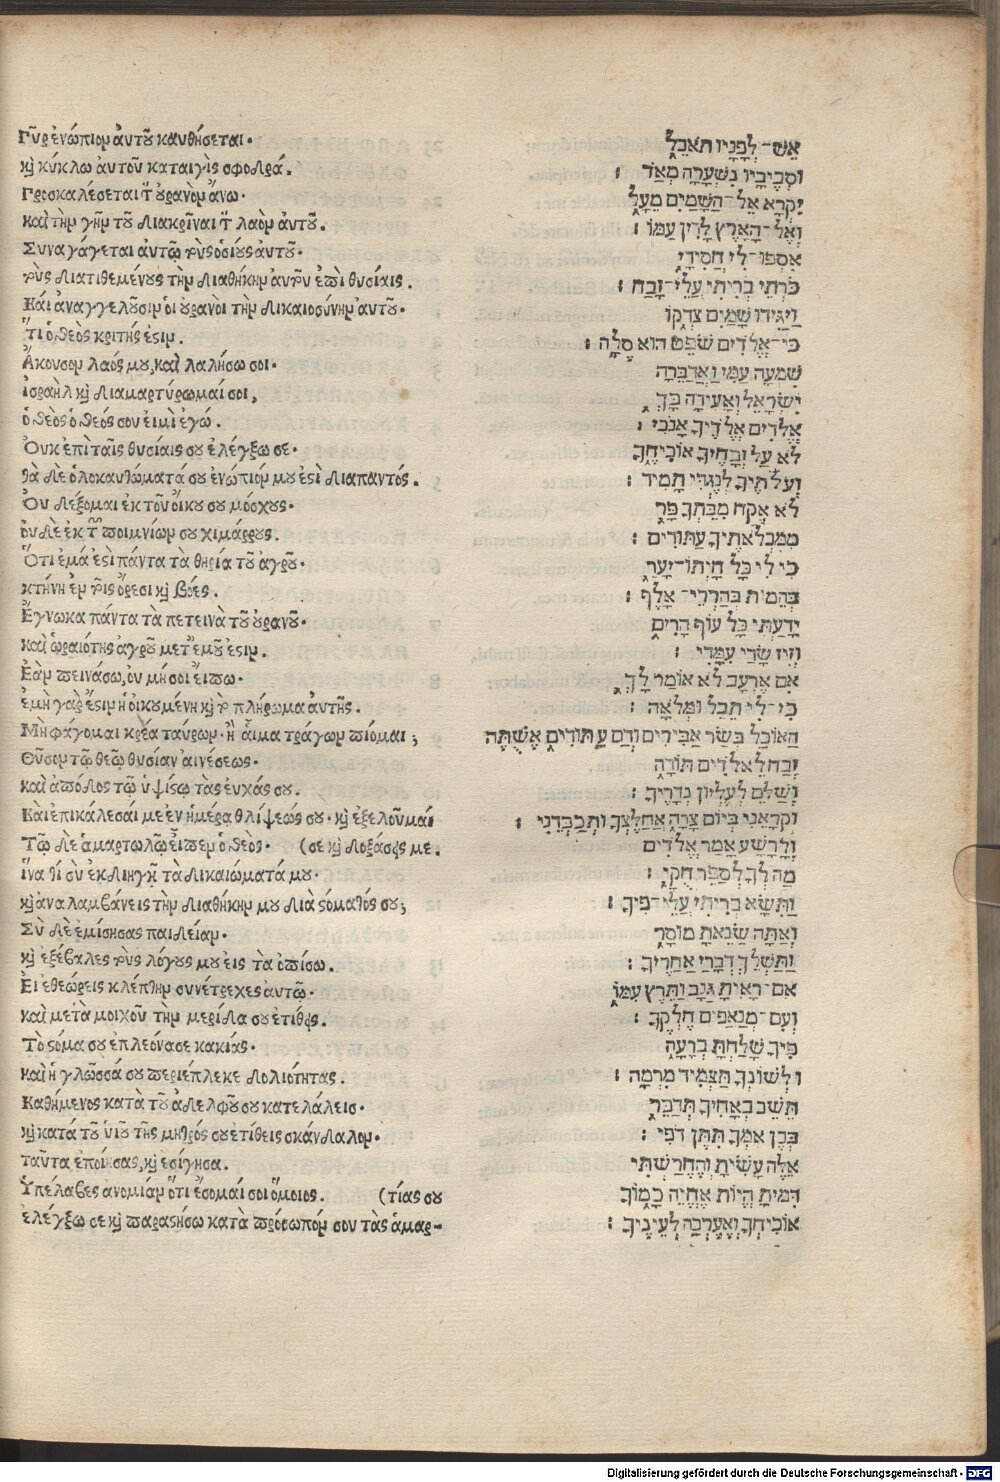 Γῦρ ἐνώπιον ἀυτοῦ καυθήσεται.
κỳ κύκλω ἀυτοῦ καταιγὶς σφοδρά.
Γροσκαλέσεται τ̀ ȣ̓ρανὸν ἄνω.
καὶ τὴν γῆν τοῦ διακρῖναι τ̀ λαὸν ἀυτοῦ.
Συναγάγεται ἀυτῷ τοὺς ὁσίους ἀυτοῦ.
τοὺς διατιθεμένους τὴν διαθήκην ἀυτοῦ ἐπὶ θυσίαις.
Καὶ ἀναγγελοῦσιν ὁι οὐρανὸι τὴν δικαιοσύνην ἀυτοῦ.
ὅτι ὁ θεὸς κριτής ἐστιν.
Ἄκουσον λαός μου, καὶ λαλήσω σοι.
ἰσραὴλ καὶ διαμαρτύρωμαί σοι,
ὁ θεὸς ὁ θεός σου ἐιμὶ ἐγώ.
Ὀυκ ἐπὶ ταῖς θυσίαις σου ἐλέγξω σε.
τὰ δὲ ὁλοκαυτώματά σου ἐνώπιόν μου ἐστὶ διαπαντός.
Ὀυ δέξομαι ἐκ τοῦ ὄικου σου μόσχους.
ὀυδὲ ἐκ τῶν ποιμνίων σου χιμάρρους.
Ὅτι ἐμά ἐστι πάντα τὰ θηρία τοῦ ἀγροῦ.
κτήνη ἐν τοῖς ὄρεσι καὶ βόες.
Ἔγνωκα πάντα τὰ πετεινὰ τοῦ οὐρανοῦ.
καὶ ὡραιότης ἀγροῦ μετ' ἐμοῦ ἐστιν.
Ἐὰν πεινάσω, ὀυ μή σοι ἔιπω.
ἐμὴ γάρ ἐστιν ἡ ὀικουμένη καὶ τὸ πλήρωμα ἀυτῆς.
Μὴ φάγομαι κρέα ταύρων. ἢ ἆιμα τράγων πίομαι;
Θῦσον τῷ θεῷ θυσίαν αινέσεως.
καὶ ἀπόδος τῷ ὑψίστῳ τὰς ἐυχάς σου.
Καὶ ἐπικάλεσαί με ἐν ἡμέρα θλίψεώς σου. καὶ ἐξελοῦμαί
Τῷ δὲ ἁμαρτωλῷ ἔιπεν ὁ θεός. (σε καὶ δοξάσεις με.
ἵνα τί σὺ ἐκδιηγῇ τὰ δικαιώματά μου.
καὶ ἀναλαμβάνεις τὴν διαθήκην μου διὰ στόματός σου;
Σὺ δὲ ἐμίσησας παιδείαν.
καὶ ἐξέβαλες τοὺς λόγους μου εις τὰ ὀπίσω.
Ἐι ἐθεώρεις κλέπτην συνέτρεχες ἀυτῷ.
καὶ μετὰ μοιχοῦ τὴν μερίδα σου ἐτίθεις.
Τὸ στόμα σου ἐπλεόνασε κακίας.
καὶ ἡ γλῶσσά σου περιέπλεκε δολιότητας.
Καθήμενος κατὰ τοῦ ἀδελφοῦ σου κατελάλεις.
καὶ κατὰ τοῦ ὑιοῦ τῆς μητρός σου ἐτίθεις σκάνδαλον.
ταῦτα ἐποίησας, καὶ ἐσίγησα.
Ὑπέλαβες ἀνομίαν ὅτι ἔσομαί σοι ὅμοιος. (τίας σου
ἐλέγξω σε καὶ παραστήσω κατὰ πρόσωπόν σου τὰς ἁμαρ-
אֵשׁ־לְפָנָיו תֹּאכֵל
וּסְבִיבָיו נִשְׂעֲרָה מְאֹד :
יִקְרָא אֶל־הַשָּׁמַיִם מֵעָל
וְאֶל־הָאָרֶץ לָדִין עַמּוֹ :
אִסְפוּ־לִי חֲסִידָי
כֹּרְתֵי בְרִיתִי עֲלֵי־זָבַח :
וַיַּגִּידוּ שָׁמַיִם צִדְקוֹ
כִּי־אֱלֹדִים שֹׁפֵט הוּא סֶלָה :
שִׁמְעָה עַמִּי וַאֲדַבֵּרָה
יִשְׂרָאֵל וְאָעִידָה בָּךְ
אֱלֹדִים אֱלֹדֶיךָ אָנֹכִי :
לֹא עַל זְבָחֶיךָ אוֹכִיחֶךָ
וְעֹלֹתֶיךָ לְנֶגְדִּי תָמִיד :
לֹא אֶקַּח מִבֵּתְךָ פָר
מִמִּכְלְאֹתֶיךָ עַתּוּדִים :
כִּי לִי כָּל חַיְתוֹ־יָעַר
בְּהֵמוֹת בְּהַרְרֵי־אָלֶף :
יָדַעְתִּי כָּל עוֹף הָרִים
וְזִיז שָׂדַי עִמָּדִי :
אִם אֶרְעַב לֹא אוֹמַר לָךְ
כִּי־לִי תֵבֵל וּמְלֹאָהּ :
הַאוֹכַל בְּשַׂר אַבִּירִים וְדַם עַתּוּדִים אֶשְׁתֶּה
זְבַח לֵאלֹדִים תּוֹדָה
וְשַׁלֵּם לְעֶלְיוֹן נְדָרֶיךָ :
וּקְרָאֵנִי בְּיוֹם צָרָה אֲחַלֶּצְךָ וּתְכַבְּדֵנִי :
וְלָרָשָׁע אָמַר אֱלֹדִים
מַה לְּךָ לְסַפֵּר חֻקָּי
וַתִּשָּׂא בְרִיתִי עֲלֵי־פִיךָ :
וְאַתָּה שָׂנֵאתָ מוּסָר
וַתַּשְׁלֵךְ דְּבָרַי אַחֲרֶיךָ :
אִם־רָאִיתָ גַנָּב וַתִּרֶץ עִמּוֹ
וְעִם־מְנָאֲפִים חֶלְקֶךָ :
פִּיךָ שָׁלַחְתָּ בְרָעָה
וּלְשׁוֹנְךָ תַּצְמִיד מִרְמָה :
תֵּשֵׁב בְּאָחִיךָ תְדַבֵּר
בְּבֶן אִמְּךָ תִּתֶּן דֹּפִי :
אֵלֶּה עָשִׂיתָ וְהֶחֱרַשְׁתִּי
דִּמִּיתָ הֱיוֹת אֶהְיֶה כָמוֹךָ
אוֹכִיחֲךָ וְאֶעֶרְכָה לְעֵינֶיךָ :
Digitalisierung gefördert durch die Deutsche Forschungsgemeinschaft - DFG